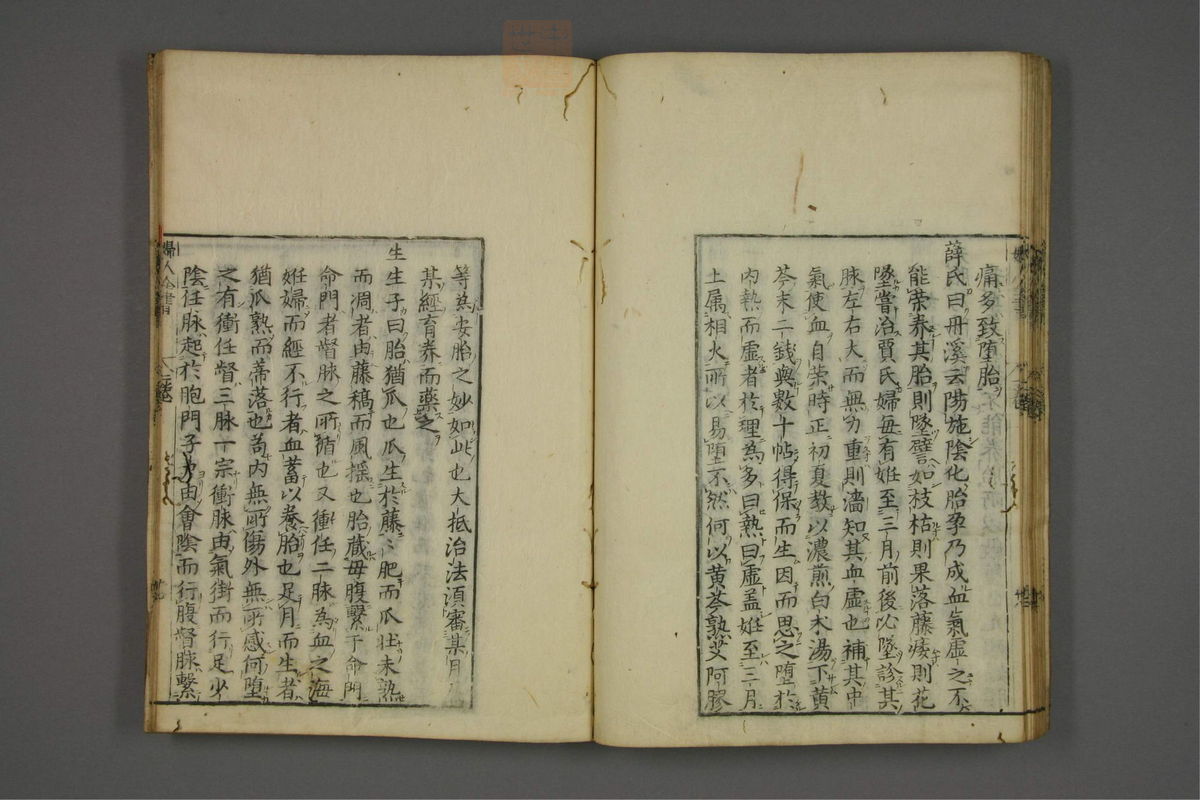 痛多致堕胎
薛氏曰丹溪云陽施陰化胎孕乃成血氣虛乏不
能荣养其胎則墜譬如枝枯則果落藤痿則花
墜嘗治賈氏婦每有姙至三月前後必墜診其
脉左右大而無力重則濇知其血虚也補其中
氣使血自荣時正初夏教以濃煎白术湯下黄
芩末二錢與數十帖得保而生因而思之堕於
内熱而虛者於理為多曰熱曰虛盖姙至三月
土属相火所以易堕不然何以黄芩熟艾阿膠
等為安胎之妙如此也大抵治法湏審某月
某經育养而藥之
生生子曰胎猶爪也爪生於藤〻肥而爪壮未熟
而凋者由藤稿而風揺也胎藏母腹繫于命門
命門者督脉之所循也又衝任二脉為血之海
姙婦而經不行者血蓄以養胎也足月而生者
猶爪熟而蒂落也苟内無所傷外無所感何堕
之有衝任督三脉一宗衝脉由氣街而行足少
陰任脉起於胞門子戸由會陰而行腹督脉繫
婦人